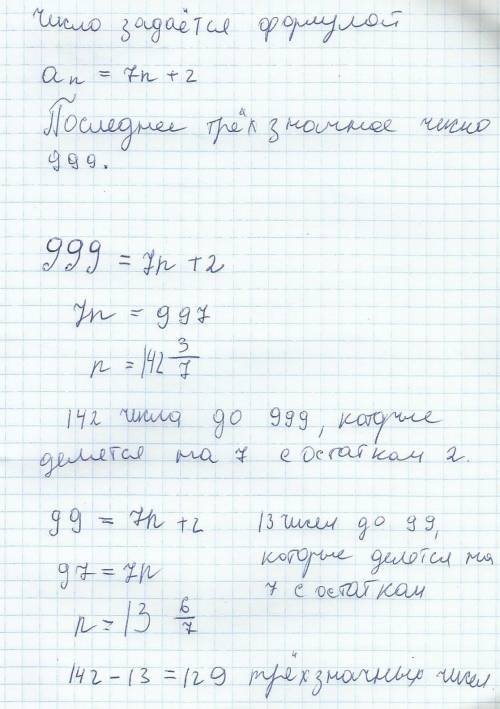 Число задаётся формулой
aₙ = 7n + 2
Последнее трёхзначное число
999.
999 = 7n + 2
7n = 997
n = 142 3/7
142 числа до 999, которые
делятся на 7 с остатком 2.
99 = 7n + 2 13 чисел до 99,
97 = 7n которые делятся на
7 с остатком
n = 13 6/7
142 - 13 = 129 трёхзначных чисел